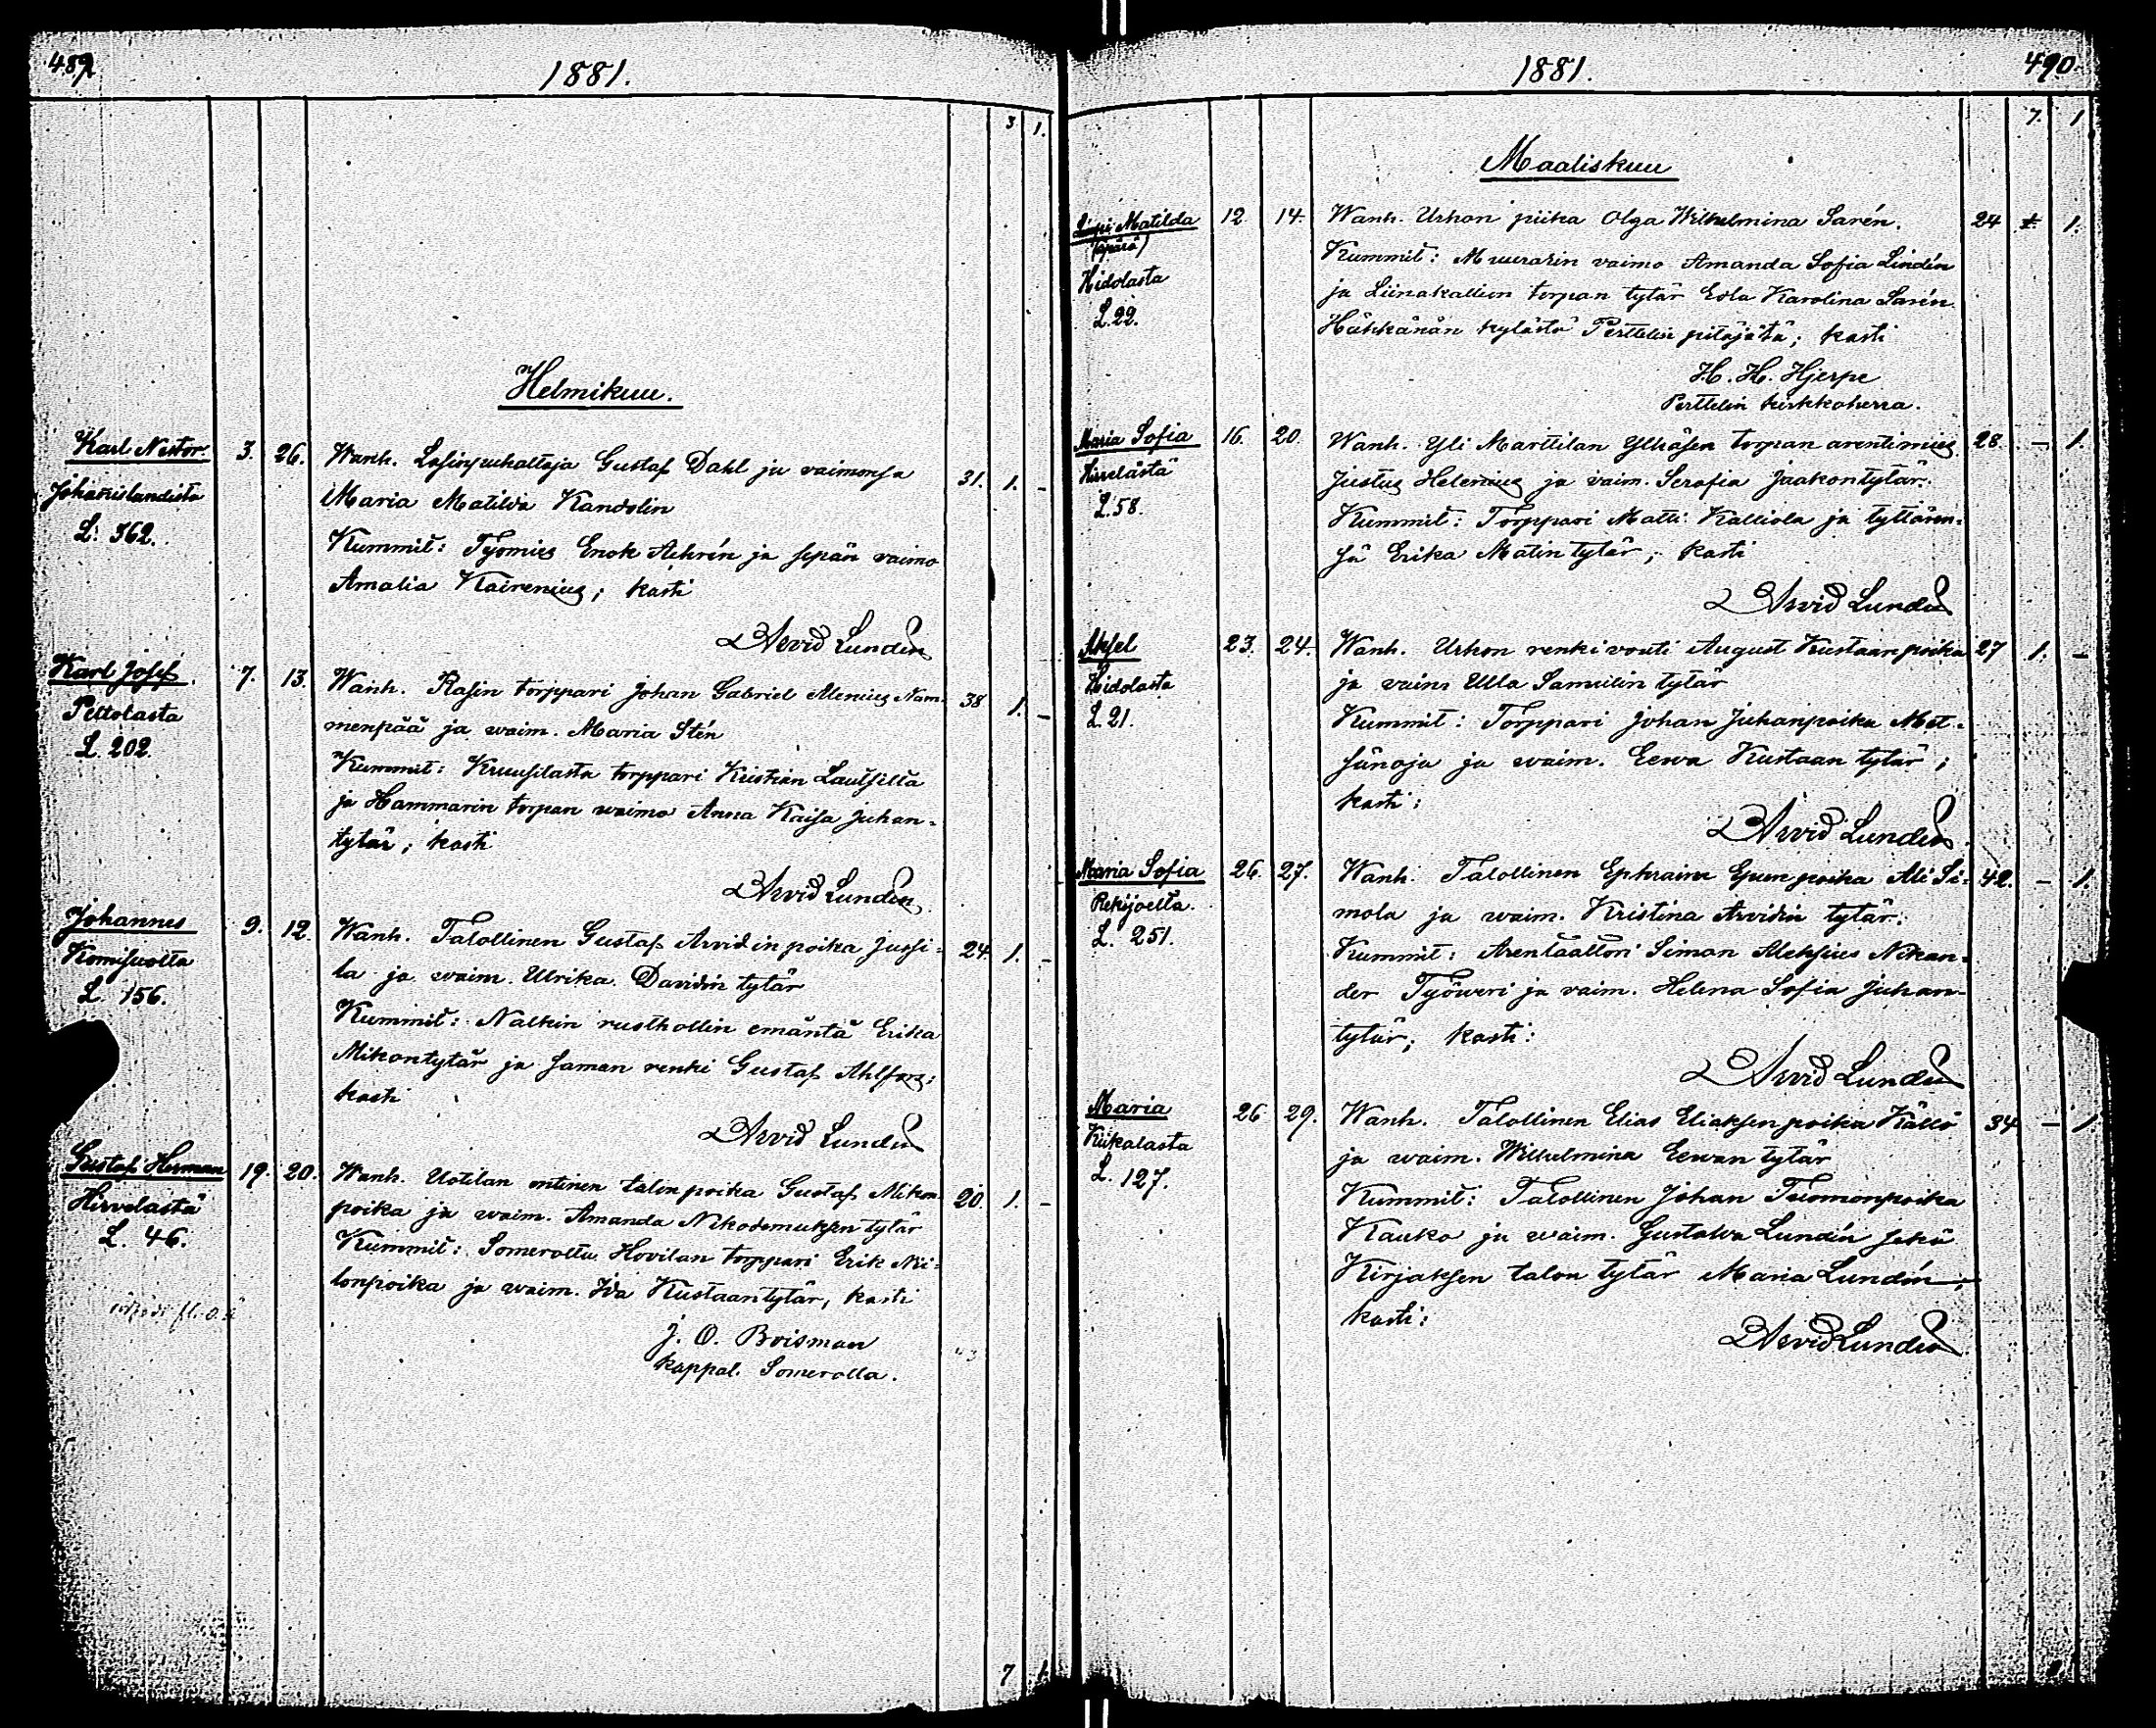 489
1881.
3. 1.
Helmikuu.
Karl Nestor
Johannislundista
L. 362.
3. 26.
Wanh. Lasinpuhaltaja Gustaf Dahl ja vaimonsa
Maria Matilda Kandolin
Kummit: Työmies Enok Achrén ja sepän vaimo
Amalia Kairenius; kasti
31. 1. -
Arvid Lundén
Karl Josef.
Peltolasta
L. 202.
7. 13.
Wanh. Rasin torppari Johan Gabriel Alenius Nam-
menpää ja waim. Maria Stén
Kummit: Kruusilasta torppari Kristian Lautsilla
ja Hammarin torpan waimo Anna Kaisa Juhan-
tytär; kasti
38 1. -
Arvid Lundén
Johannes
Komisuolta
L. 156.
9. 12.
Wanh. Talollinen Gustaf Arvidin poika Jussi-
la ja waim. Ulrika Davidin tytär
Kummit: Nalkin rusthollin emäntä Erika
Mikontytär ja saman renki Gustaf Ahlfors;
kasti
24. 1. -
Arvid Lundén
Gustaf Herman
Hirvelastä
L. 46.
19. 20.
Wanh. Uotilan entinen talon poika Gustaf Mikon
poika ja waim. Amanda Nikodemuksen tytär
Kummit: Somerolta Hovilan torppari Erik Nii-
lonpoika ja waim. Ida Kustaantytär, kasti
20. 1. -
J. O. Boisman
kappal. Somerolla.
7 1.
1881.
490.
7. 1
Maaliskuu
Matilda
(äpärä)
Hidolasta
L. 22.
12. 14.
Wanh. Urhon piika Olga Wilhelmina Sarén.
Kummit: Muurarin vaimo Amanda Sofia Lindén
ja Liinakallion torpan tytär Edla Karolina Sarén
Hähkänän kylästä Perttelin pitäjätä; kasti
24 1.
H. H. Hjerpe
Perttelin kirkkoherra.
Maria Sofia
Hirvelästä
L. 58.
16. 20.
Wanh. Yli Marttilan Ylhäsen torpan arentimies
Justus Helenius ja vaim. Serafia Jaakontytär.
Kummit: Torppari Matti Kalliola ja tyttären-
sä Erika Matintytär; kasti
28. - 1.
Arvid Lundén
Aksel
Hidolasta
L. 21.
23. 24.
Wanh. Urhon renki vouti August Kustaanpoika
ja vaim Ulla Samulin tytär
Kummit: Torppari Johan Juhanpoika Met-
sänoja ja waim. Eewa Kustaan tytär;
kasti:
27 1. -
Arvid Lundén
Maria Sofia
Rekijoelta.
L. 251.
26. 27.
Wanh. Talollinen Ephraim Epran poika Ali Si-
mola ja waim. Kristina Arvidin tytär.
Kummit: Arentäältöri Simon Aleksius Nikan-
der Työweri ja vaim. Helena Sofia Juhan-
tytär; kasti:
42. - 1.
Arvid Lundén
Maria
Kiikalasta
L. 127.
26. 29.
Wanh. Talollinen Elias Eliaksen poika Källö
ja waim. Wilhelmina Eewan tytär
Kummit: Talollinen Johan Tuomonpoika
Kauko ja waim. Gustawa Lundén sekä
Kirjaksen talon tytär Maria Lundén;
kasti:
34 - 1.
Arvid Lundén